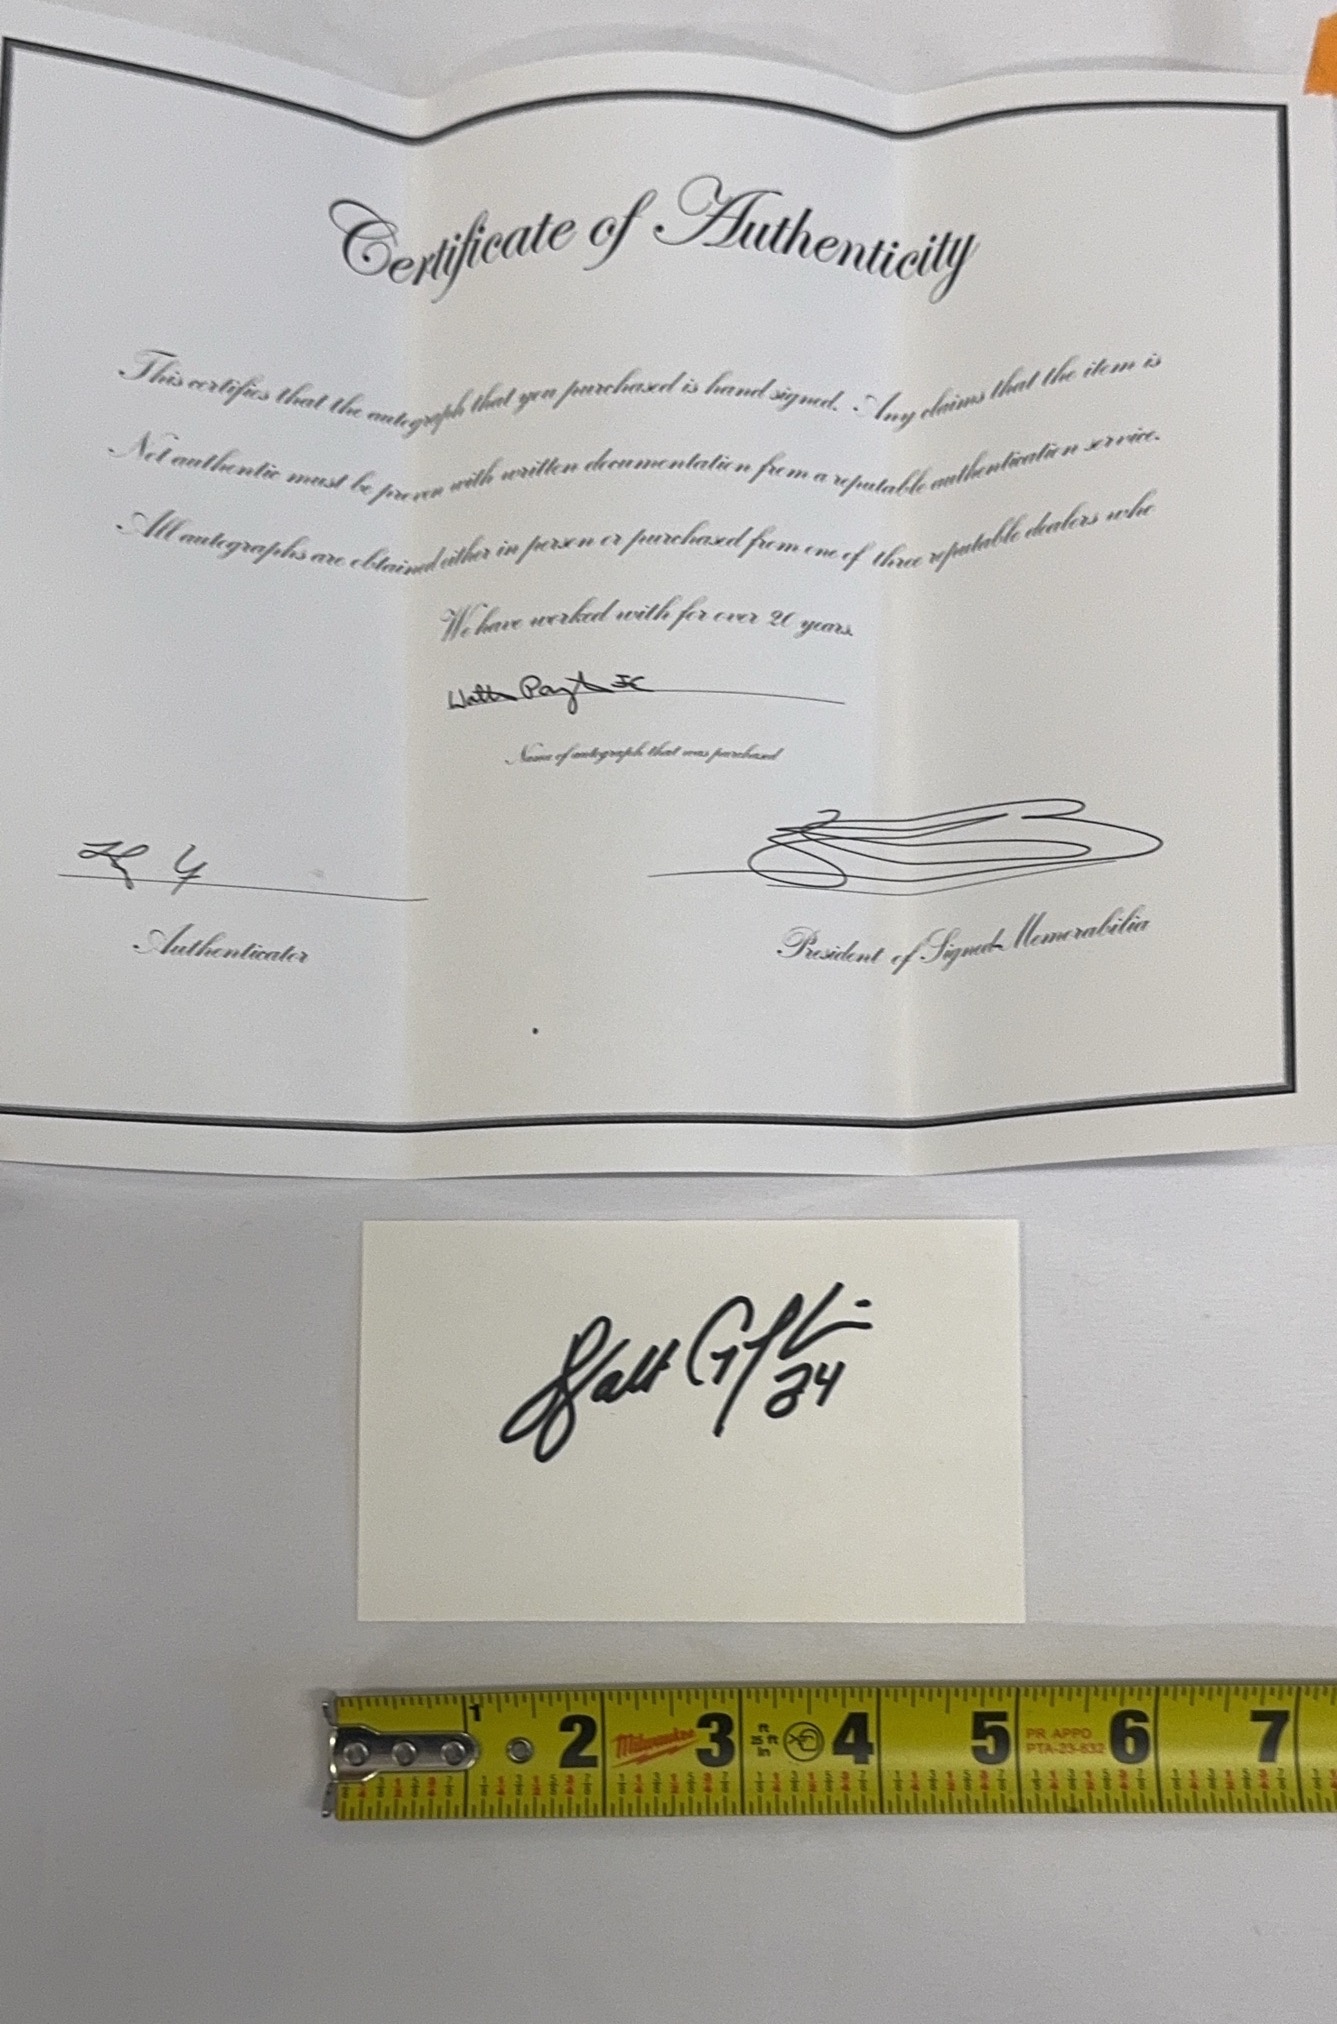 Certificate of Authenticity
This certifies that the autograph that you purchased is hand signed. Any claims that the item is
Not authentic must be proven with written documentation from a reputable authentication service.
All autographs are obtained either in person or purchased from one of three reputable dealers who
We have worked with for over 20 years.
Walter Payton IC
Name of autograph that was purchased
Authenticator
President of Signed Memorabilia
34
1 2 Milwaukee 3 ft 25 ft in 4 5 PR APPD PTA-23-632 6 7